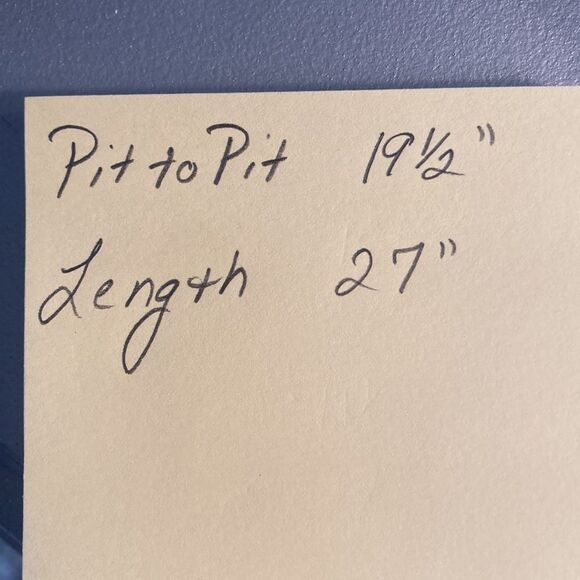 Pit to Pit 19½"
Length 27"